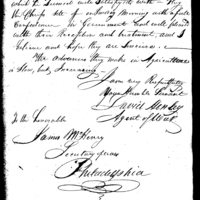 which he seemed well satisfied with — They
the Chiefs etc are
Conference in Government and well pleased
with their Reception and treatment, and I
believe and hope they are sincere.
The advances they make in Agriculture
is slow, but, Increasing
I am very Respectfully
Your Humble Servant
David Henley
Agent of War
To the Honorable
James McHenry
Secretary of War
Philadelphia